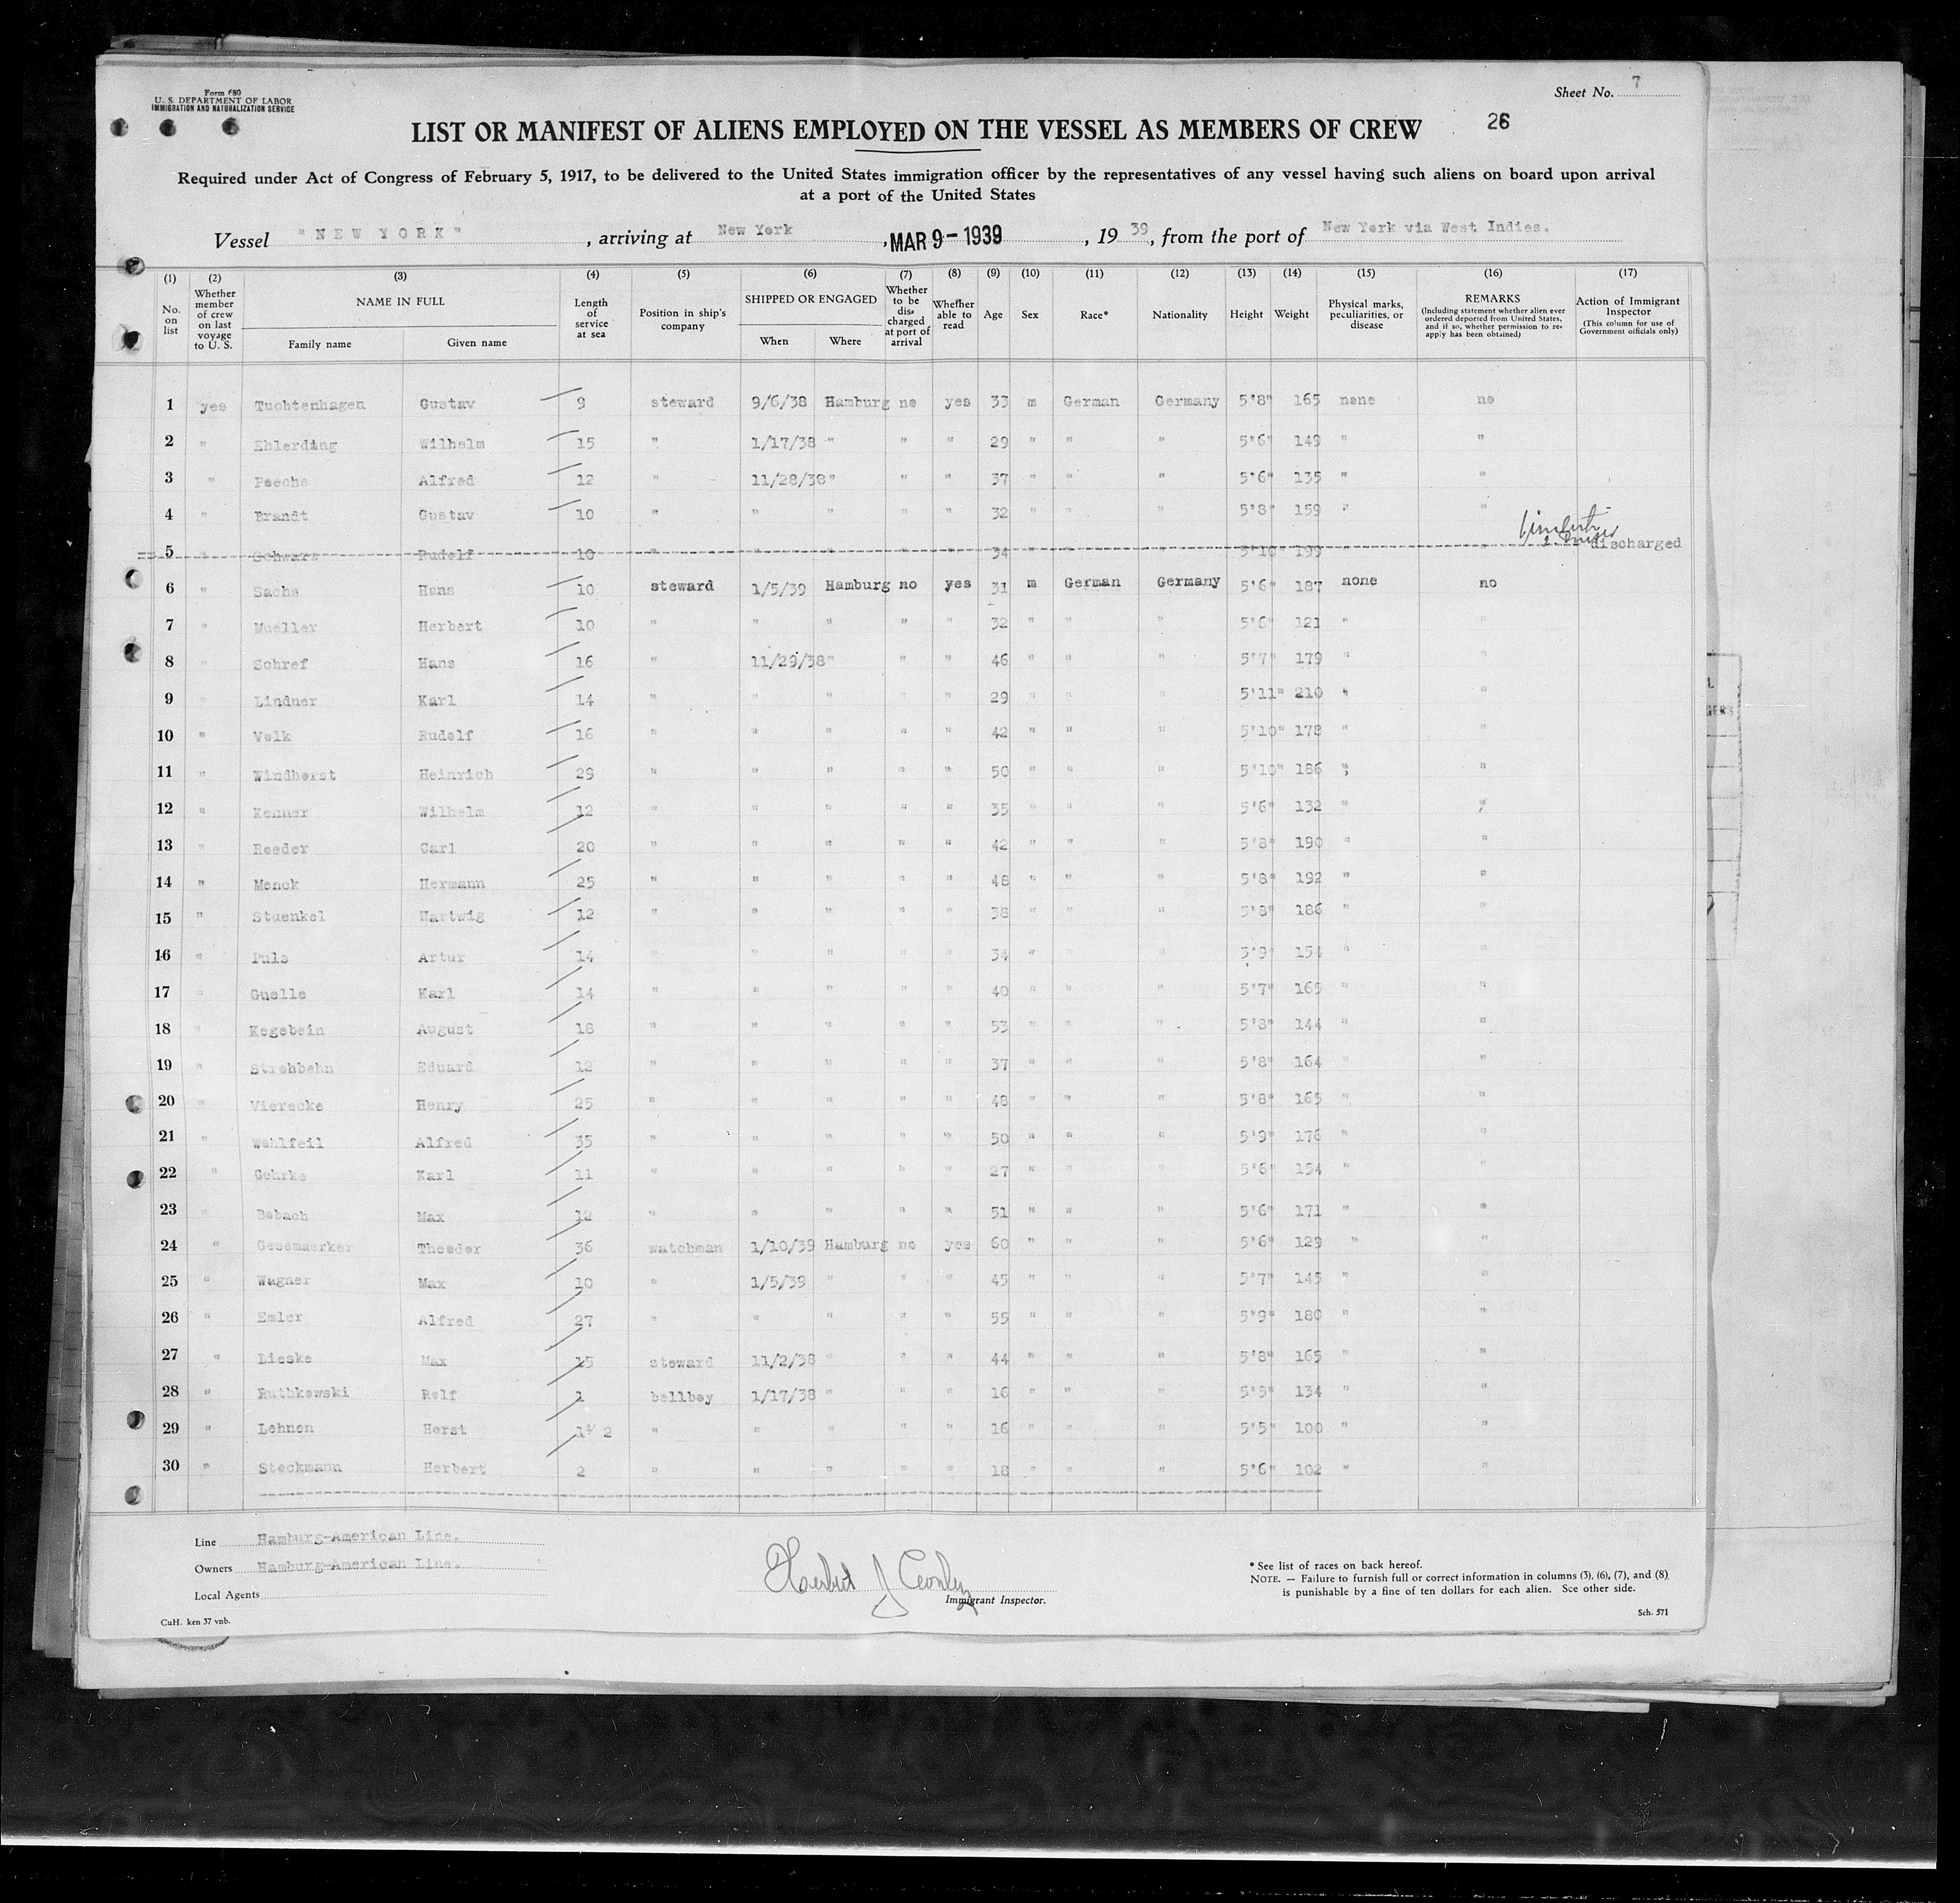 Form 680
U. S. DEPARTMENT OF LABOR
IMMIGRATION AND NATURALIZATION SERVICE
Sheet No. 7
LIST OR MANIFEST OF ALIENS EMPLOYED ON THE VESSEL AS MEMBERS OF CREW 26
Required under Act of Congress of February 5, 1917, to be delivered to the United States immigration officer by the representatives of any vessel having such aliens on board upon arrival
at a port of the United States
Vessel "NEW YORK", arriving at New York, MAR 9-1939, 1939, from the port of New York via West Indies.
(1) (2) (3) (4) (5) (6) (7) (8) (9) (10) (11) (12) (13) (14) (15) (16) (17)
No. on list
Whether member of crew on last voyage to U. S.
NAME IN FULL
Family name Given name
Length of service at sea
Position in ship's company
SHIPPED OR ENGAGED
When Where
Whether to be discharged at port of arrival
Whether able to read
Age
Sex
Race*
Nationality
Height
Weight
Physical marks, peculiarities, or disease
REMARKS
(Including statement whether alien ever ordered deported from United States, and if so, whether permission to reapply has been obtained)
Action of Immigrant Inspector
(This column for use of Government officials only)
1 yes Tuchtenhagen Gustav 9 steward 9/6/38 Hamburg no yes 33 m German Germany 5'8" 165 none no
2 " Ehlerding Wilhelm 15 " 1/17/38 " " " 29 " " " 5'6" 149 " "
3 " Peeche Alfred 12 " 11/28/38 " " " 37 " " " 5'6" 135 " "
4 " Brandt Gustav 10 " " " " " 32 " " " 5'8" 159 " "
5 " Schwarz Rudolf 10 " " " " " 34 " " " 5'10" 199 " " discharged
6 " Sachs Hans 10 steward 1/5/39 Hamburg no yes 31 m German Germany 5'6" 187 none no
7 " Mueller Herbert 10 " " " " " 32 " " " 5'6" 121 " "
8 " Schref Hans 16 " 11/29/38 " " " 46 " " " 5'7" 179 " "
9 " Lindner Karl 14 " " " " " 29 " " " 5'11" 210 " "
10 " Volk Rudolf 16 " " " " " 42 " " " 5'10" 178 " "
11 " Windhorst Heinrich 29 " " " " " 50 " " " 5'10" 186 " "
12 " Kenner Wilhelm 12 " " " " " 35 " " " 5'6" 132 " "
13 " Reeder Carl 20 " " " " " 42 " " " 5'8" 190 " "
14 " Menck Hermann 25 " " " " " 48 " " " 5'8" 192 " "
15 " Stuenkel Hartwig 12 " " " " " 38 " " " 5'8" 186 " "
16 " Puls Artur 14 " " " " " 34 " " " 5'9" 154 " "
17 " Guelle Karl 14 " " " " " 40 " " " 5'7" 165 " "
18 " Kegebein August 18 " " " " " 53 " " " 5'8" 144 " "
19 " Strohbehn Eduard 12 " " " " " 37 " " " 5'8" 164 " "
20 " Vierecke Henry 25 " " " " " 48 " " " 5'8" 165 " "
21 " Wohlfeil Alfred 35 " " " " " 50 " " " 5'9" 176 " "
22 " Gehrke Karl 11 " " " " " 27 " " " 5'6" 154 " "
23 " Bobach Max 12 " " " " " 51 " " " 5'6" 171 " "
24 " Gesemaerker Theodor 36 watchman 1/10/39 Hamburg no yes 60 " " " 5'6" 129 " "
25 " Wagner Max 10 " 1/5/39 " " " 45 " " " 5'7" 145 " "
26 " Emler Alfred 27 " " " " " 55 " " " 5'9" 180 " "
27 " Lieske Max 15 steward 11/2/38 " " " 44 " " " 5'8" 165 " "
28 " Ruthkowski Rolf 1 bellboy 1/17/38 " " " 16 " " " 5'5" 134 " "
29 " Lehnen Horst 2 " " " " " 16 " " " 5'5" 100 " "
30 " Stockmann Herbert 2 " " " " " 18 " " " 5'6" 102 " "
Line Hamburg-American Line.
Owners Hamburg-American Line.
Local Agents
Immigrant Inspector.
CuH. ken 37 vnb.
* See list of races on back hereof.
NOTE. — Failure to furnish full or correct information in columns (3), (6), (7), and (8)
is punishable by a fine of ten dollars for each alien. See other side.
Sch. 571